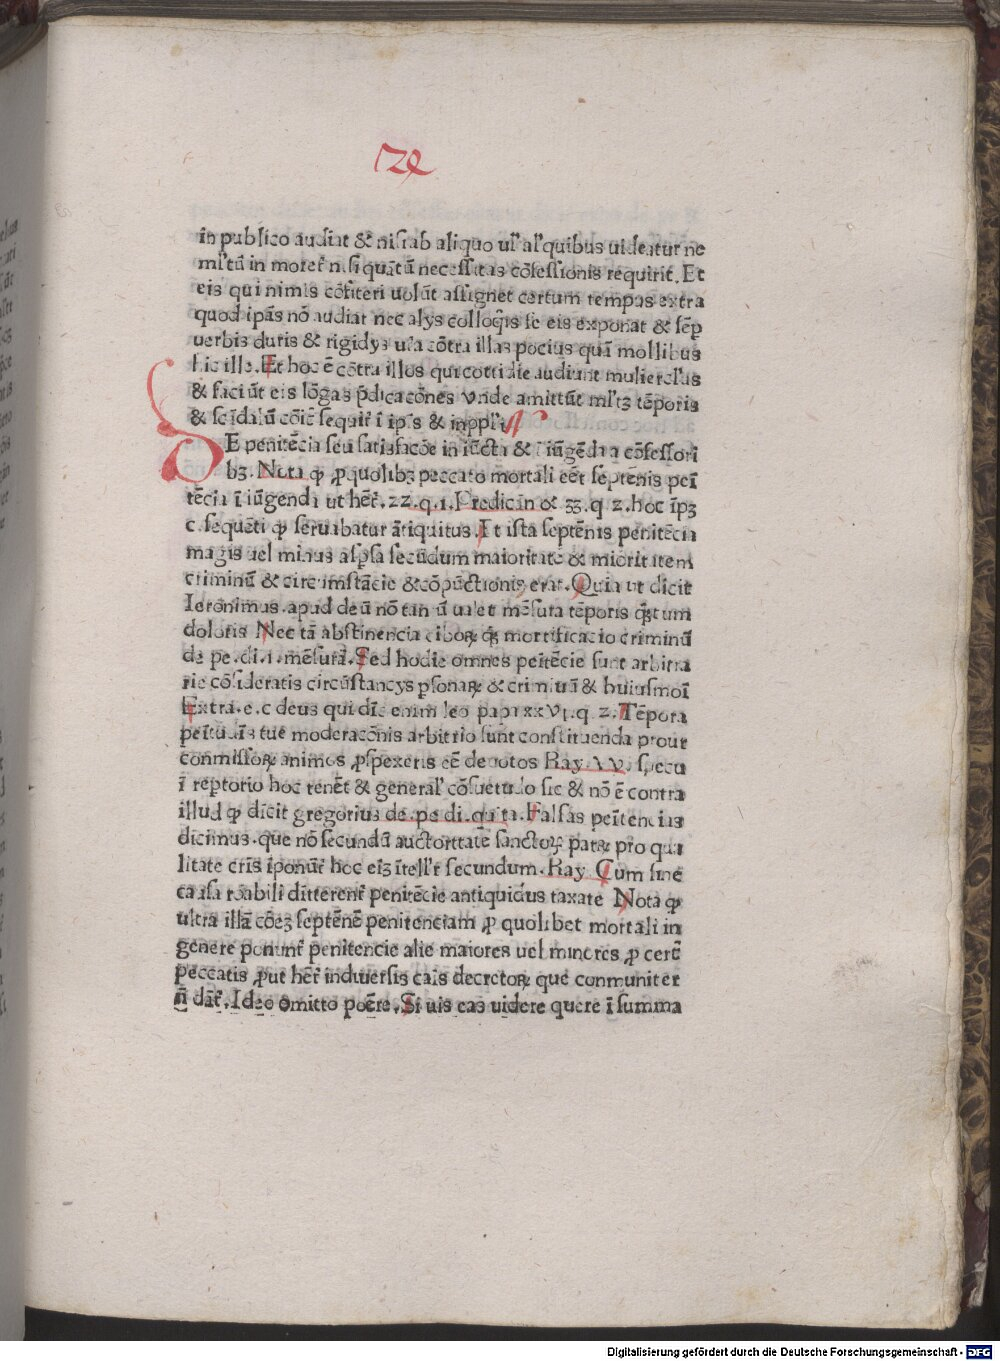 in publico audiat & nisi ab aliquo ul' al'quibus uideatur ne
ml'tū in moret̄ nisi quātā necessitas cōfessionis requirit. Et
eis qui nimis cōfiteri uolūt assignet certum tempus extra
quod ipās nō audiat nec alys colloq̄is se eis exponat & sēp
uerbis duris & rigidys uta cōtra illas pocius quā mollibus
hic ille. Et hoc ē cōtra illos qui cottidie audiunt mulierclas
& faciūt eis lōgas p̄dicacōnes vnde amittūt ml'tʒ tēporis
& scādalū cōiē sequit̄ ī ip̄s &
DE penitēcia seu satisfacōe in iūcta & ī iūgēda a cōfessori
bʒ. Nota ꝙ ꝓ quolibʒ peccato mortali eēt septēnis peī
tēcia ī iūgenda ut het̄. 22. q. 1. Predicandū & 33. q 2. hoc ip̄ʒ
c. sequēti ꝙ seruabatur ātiquitus. Et ista septēnis penitēcia
magis uel minus asp̄sa secūdum maioritatē & mioritatem
criminū & circūmstācie & cōpūctionis erat. Quia ut dicit
Ieronimus. apud deū nō tantū ualet mēsura tēporis q̄ꝫtum
doloris Nec tā abstinencia ciboꝝ q̄ꝫ mortificacio criminū
de pe. di. 1. mēsurā. Sed hodie omnes peitēcie sunt arbitra
rie cōsideratis circūstancys ꝑsonaꝝ & criminū & huiusmoī
Extra. e. c deus qui dīc enim leo papa xxvi. q. 2. Tēpora
peītudīs tue moderacōnis arbitrio sunt constituenda prout
conmissoꝝ animos ꝓspexeris eē deuotos Ray. VV. specu
ī reptorio hoc tenēt & general' cōsuetudo sic & nō ē contra
illud ꝙ dicit gregorius de. pe di. quīta. Falsas peītencias
dicimus. que nō secundū auctorttatē sanctoꝝ patꝝ pro qua
litate crīs īponūt̄ hoc eīʒ ītell'r secundum. Ray Cum sine
causa roābili ditterent̄ penitēcie antiquidus taxate Nota ꝙ
ultra illā cōeʒ septēnē penitenciam ꝓ quolibet mortali in
genere ponunt̄ penitencie alie maiores uel minores ꝓ certī
peccatis ꝓut het̄ indiuersis cāis decretoꝝ que conmuniter
n̄ dāt̄. Ideo omitto poēre. Si uis eas uidere quere ī summa
Digitalisierung gefördert durch die Deutsche Forschungsgemeinschaft - DFG